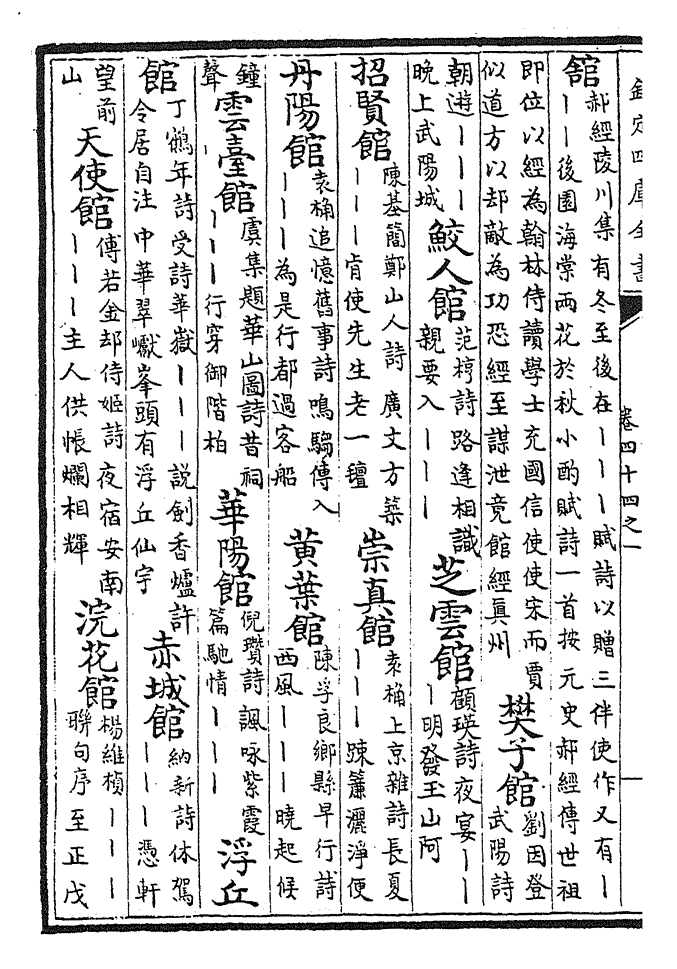 欽定四庫全書
卷四十四之一
館
郝經陵川集有冬至後在｜｜｜賦詩以贈三伴使作又有｜
｜｜後園海棠兩花於秋小酌賦詩一首按元史郝經傳世祖
即位以經為翰林侍讀學士充國信使使宋而賈
似道方以却敵為功恐經至謀泄竟館經真州
樊子館
劉因登
武陽詩
朝遊｜｜｜
晚上武陽城
鮫人館
范梈詩路逢相識
親要入｜｜｜
芝雲館
顧瑛詩夜宴｜｜
｜明發玉山阿
招賢館
陳基簡鄭山人詩廣文方築
｜｜｜肯使先生老一氊
崇真館
袁桷上京雜詩長夏
｜｜｜踈簾灑淨便
丹陽館
袁桷追憶舊事詩鳴騶傳入
｜｜｜為是行都過客船
黄葉館
陳孚良鄉縣早行詩
西風｜｜｜曉起候
鐘
聲
雲臺館
虞集題華山圖詩昔祠
｜｜｜行穿御階柏
華陽館
倪瓚詩諷咏紫霞
篇馳情｜｜｜
浮丘
館
丁鶴年詩受詩華嶽｜｜｜說劍香爐許
令居自注中華翠巘峯頭有浮丘仙宇
赤城館
納新詩休駕
｜｜｜憑軒
望前
山
天使館
傅若金却侍姬詩夜宿安南
｜｜｜主人供帳爛相輝
浣花館
楊維楨｜｜｜
聯句序至正戊